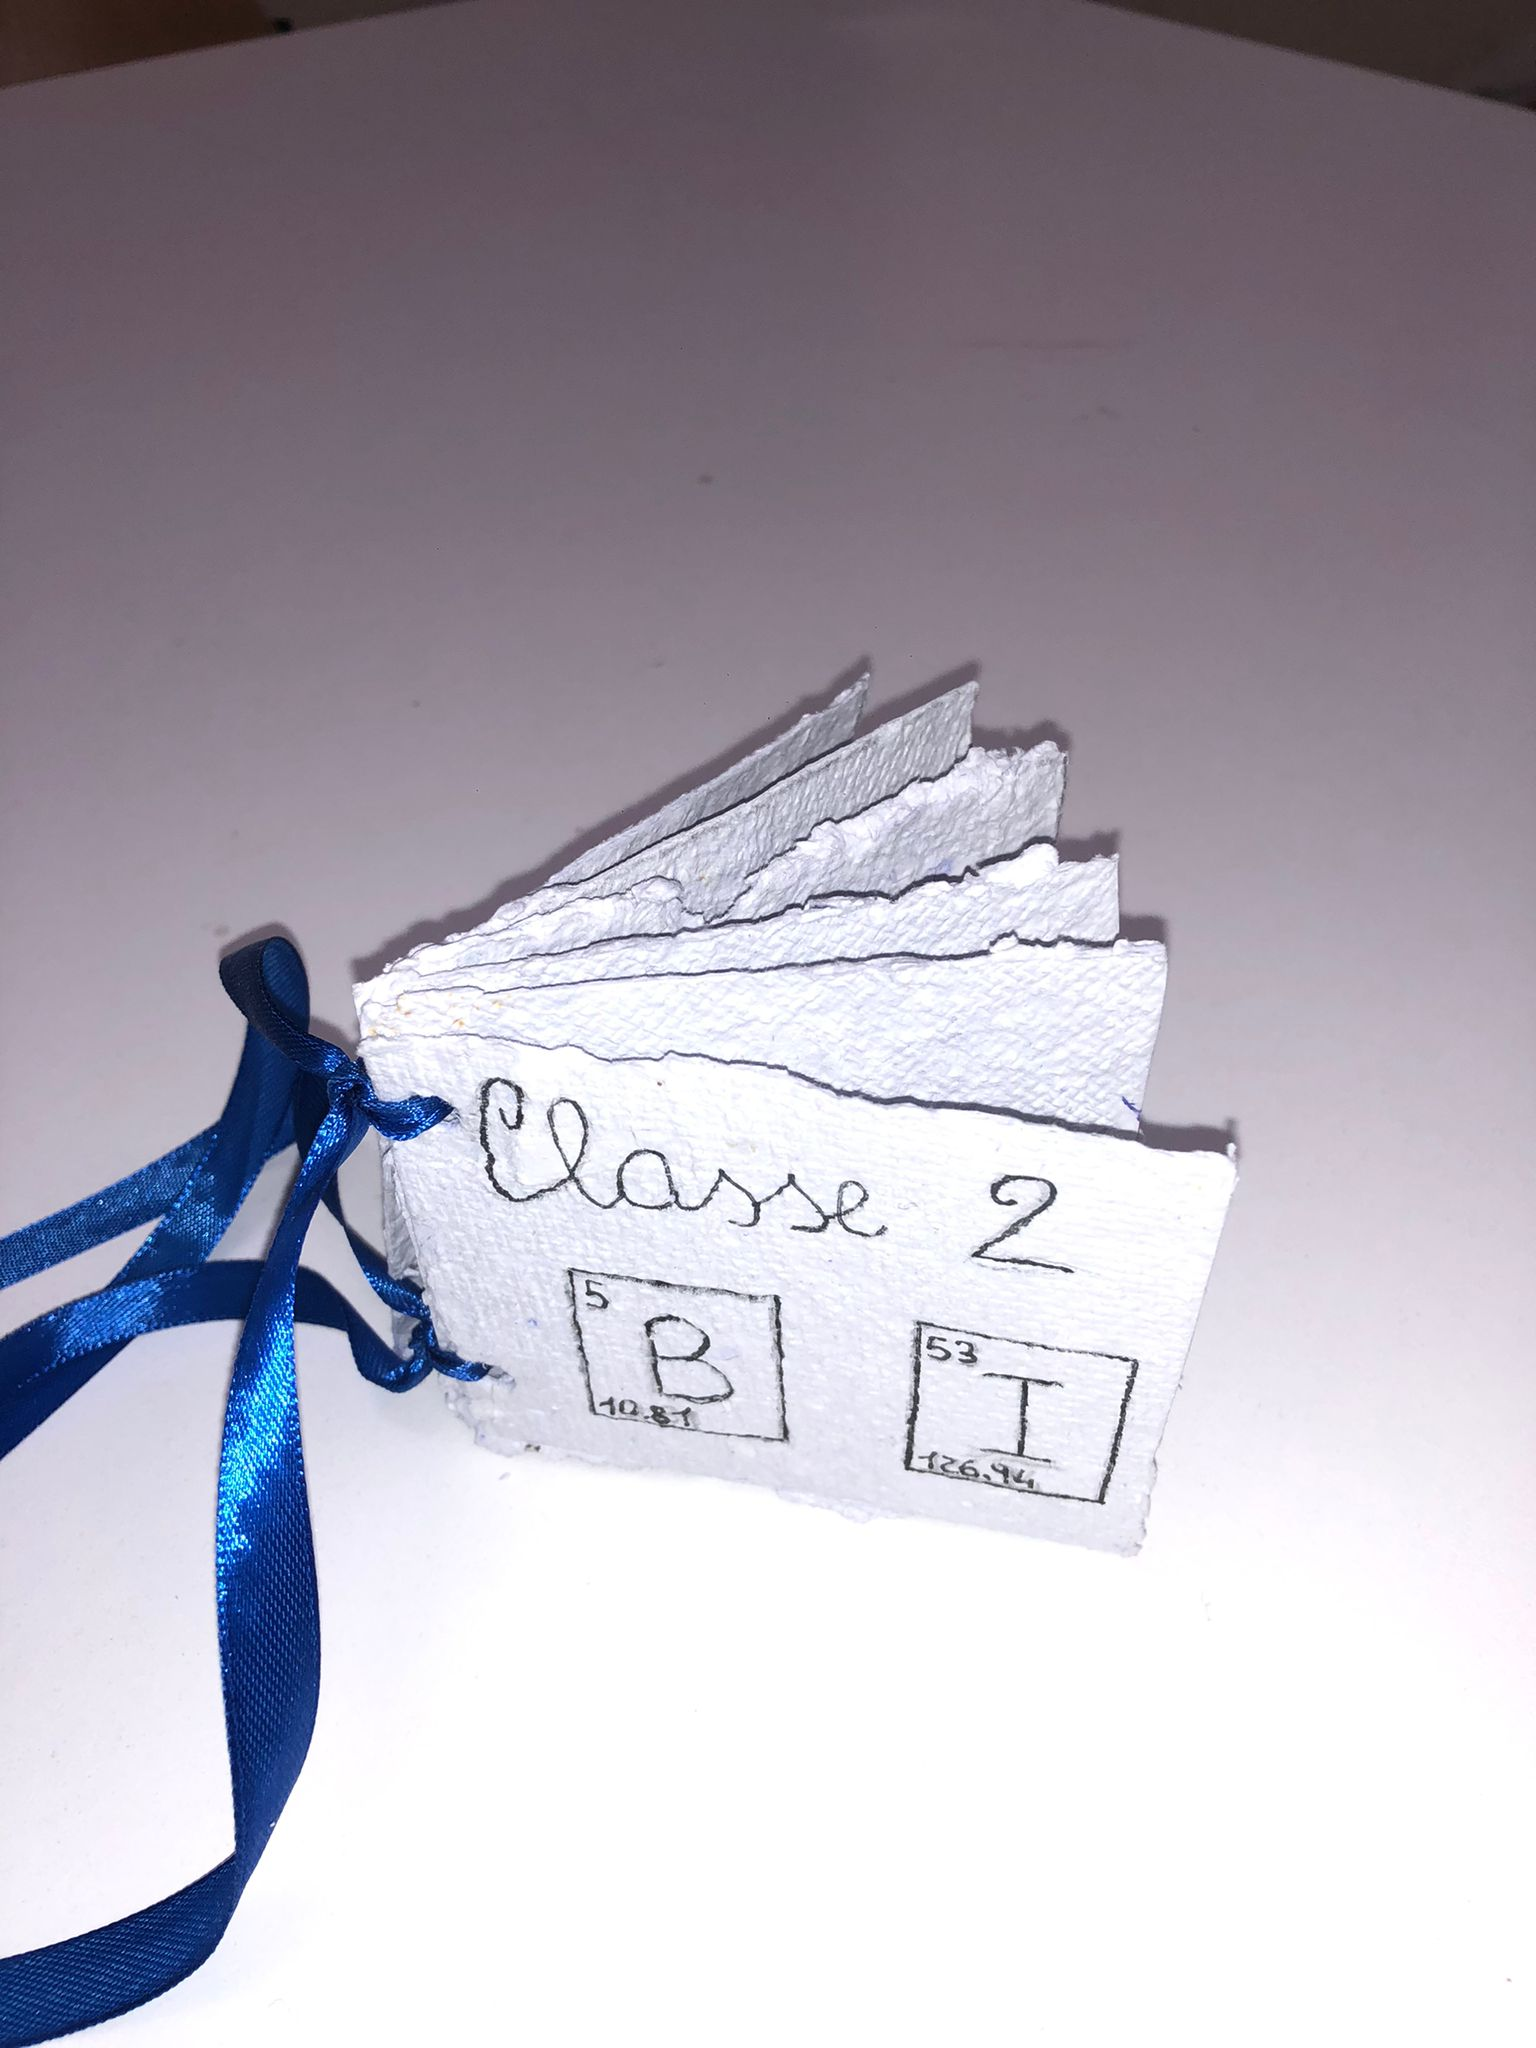 Classe 2
5
B
10.81
53
I
126.94